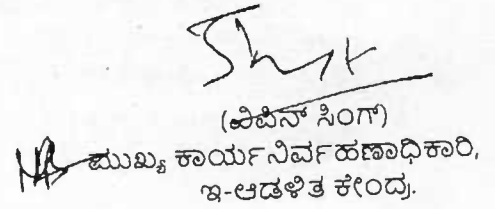 (ವಿಪಿನ್ ಸಿಂಗ್)
ಮುಖ್ಯ ಕಾರ್ಯನಿರ್ವಹಣಾಧಿಕಾರಿ,
ಇ-ಆಡಳಿತ ಕೇಂದ್ರ.